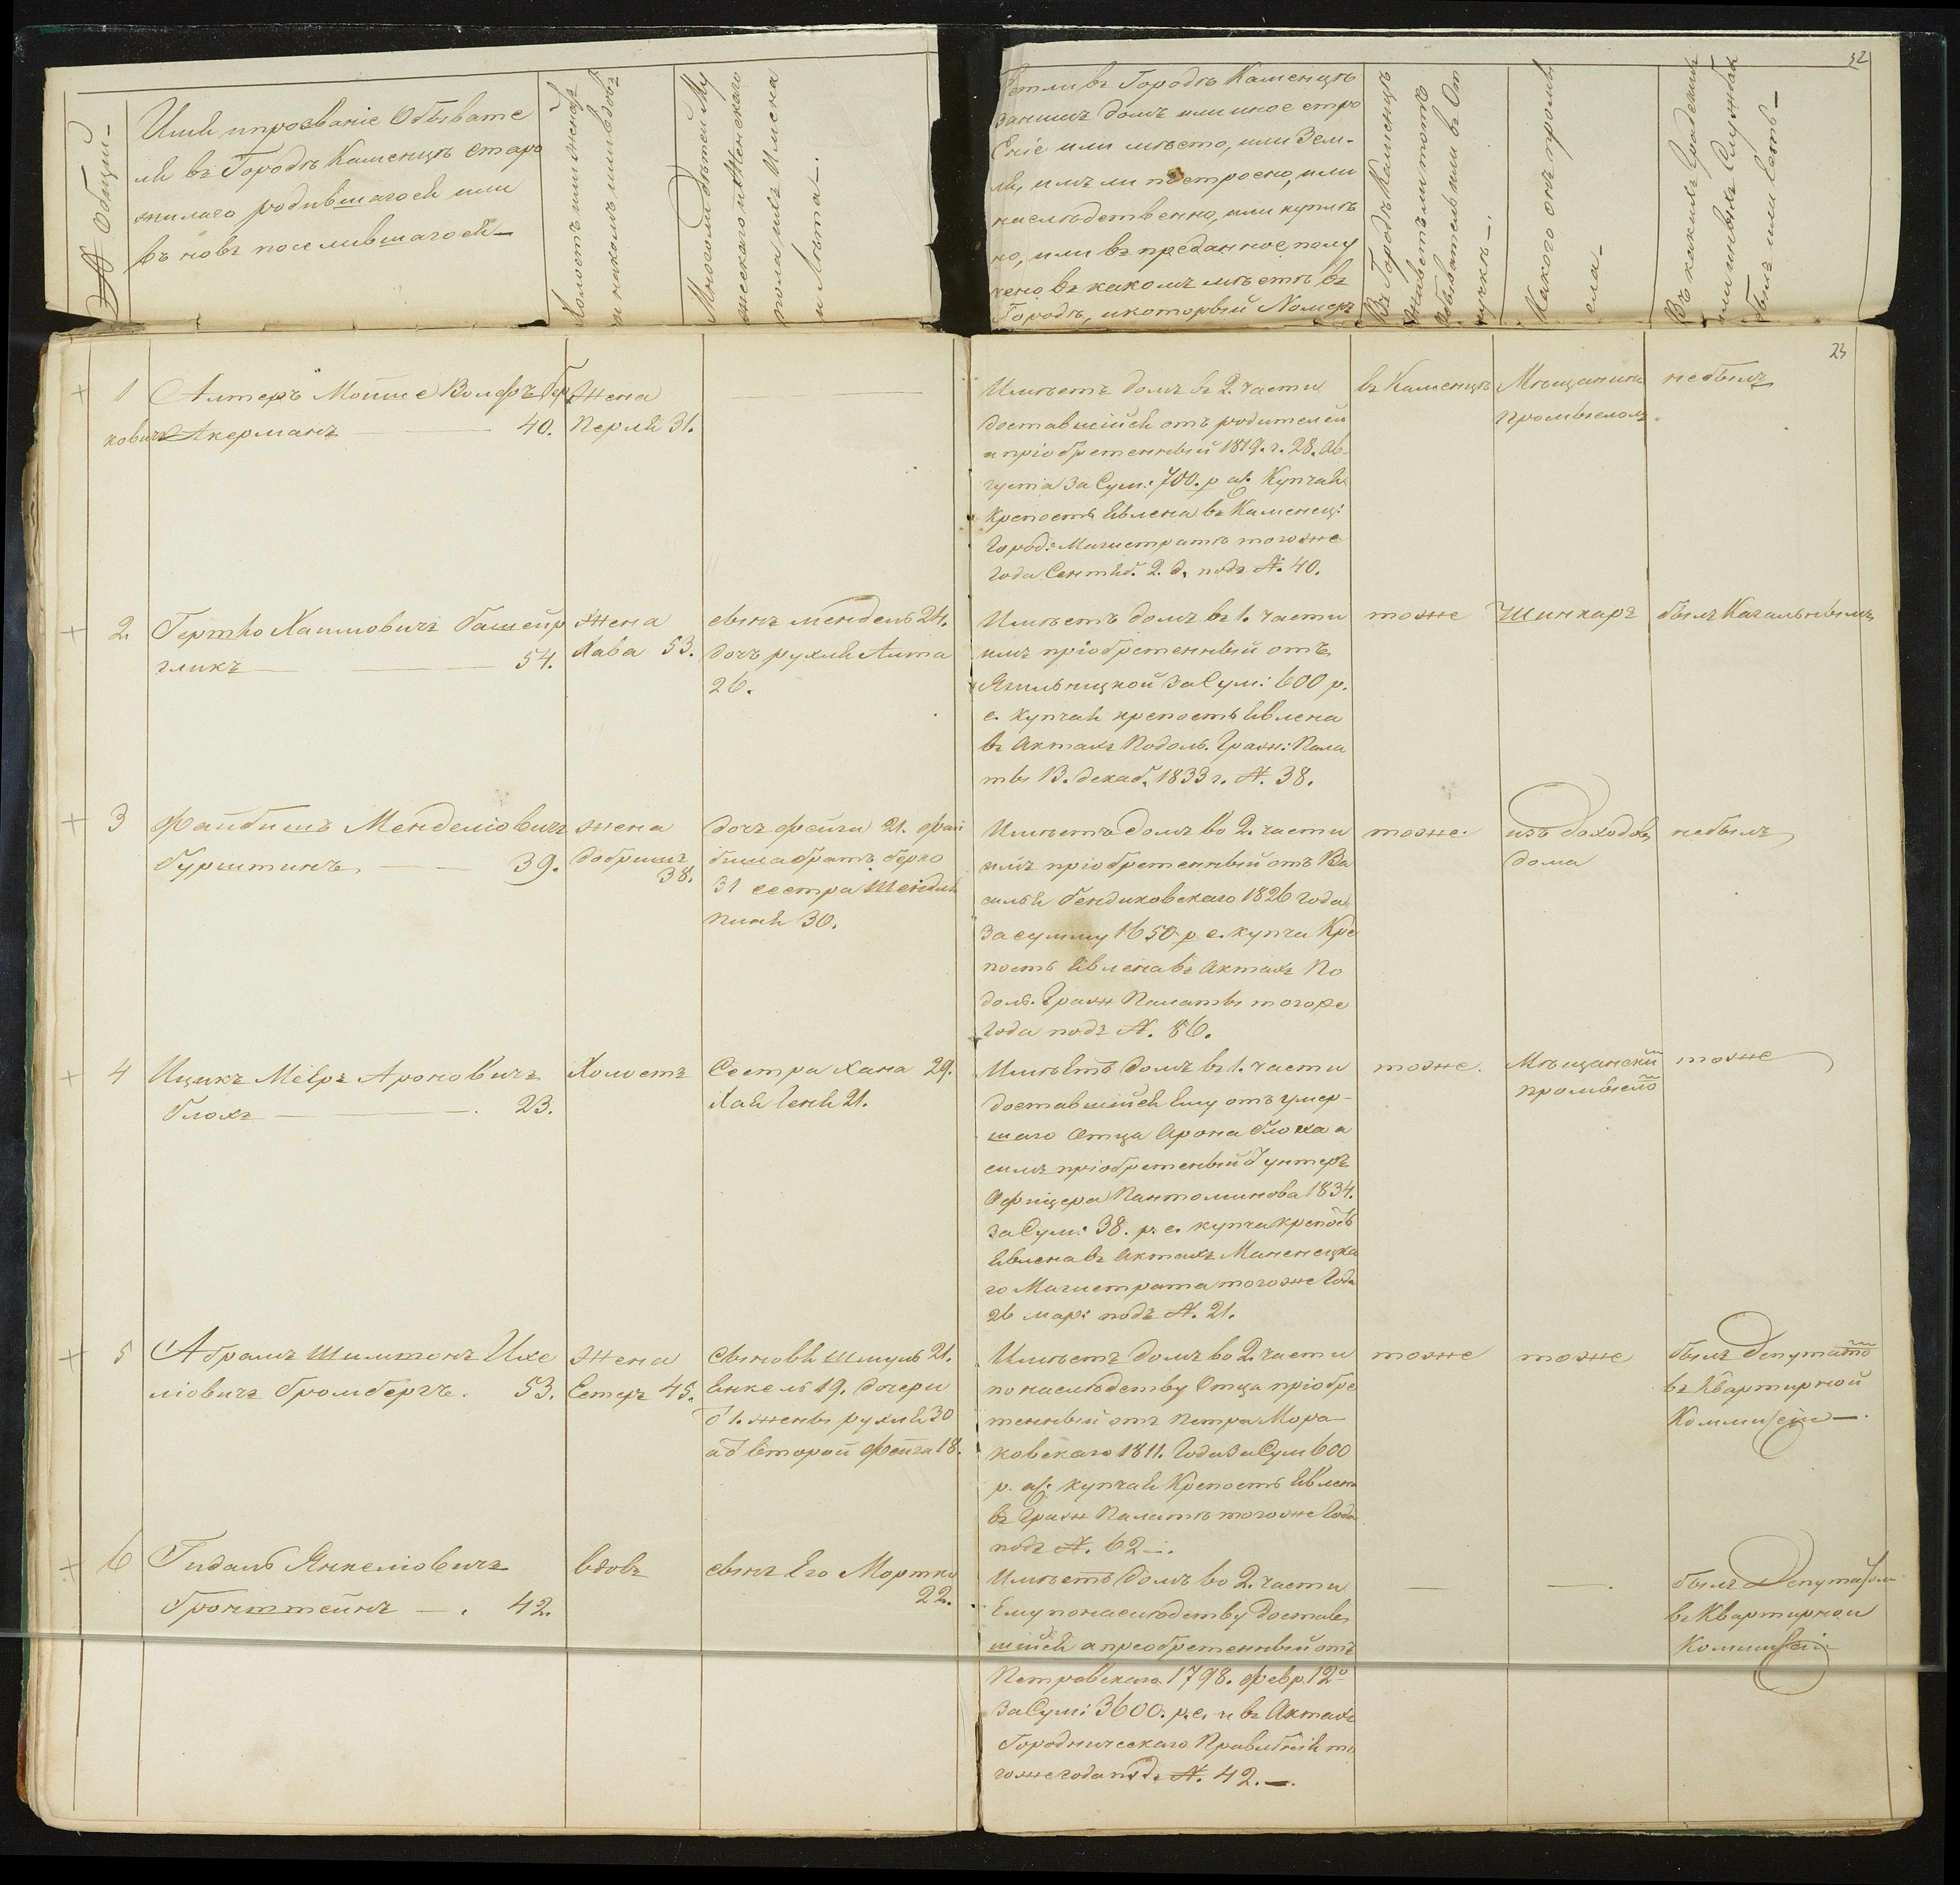 № Общий —
Имя и прозваніе Обывате
ля въ Городѣ Каменцѣ старо
жилаго родившагося или
въ новъ поселившагося —
Холостъ или женатъ
и на комъ или вдовъ
Много ли дѣтей му
жескаго и Женскаго
пола и ихъ Имена
и Лѣта —.
52
Есть ли въ Городѣ Каменцѣ
за нимъ домъ или иное стро
Еніе или мѣсто, или Зем-
ля, имъ ли построено, или
наслѣдственно, или куплѣ
но, или въ преданное полу
чено въ какомъ мѣстѣ въ
Городѣ, и который Номеръ
Въ Городѣ Каменцѣ
живетъ ли тотъ
Обыватель или въ От
лучкѣ —.
Какого онъ промы
сла —
Въ какихъ Градскихъ
или иныхъ Службах
былъ или Есть —
23
1
Алтеръ Мойше Волфъ Бер
ковичъ Акерманъ — 40.
Жена
Перля 31.
Имѣетъ домъ въ 2. части
доставшійся отъ родителей
а пріобретенный 1819. г. 28. Ав-
густа за Сум: 700. р. ас. Купчая
Крепость Явлена въ Каменец:
Город: Магистратѣ того же
года Сентяб. 2. д. подъ №. 40.
въ Каменцѣ
Мѣщанин
промысломъ
небылъ
2.
Гершко Хаимовичъ Башейр
гликъ — 54.
жена
Хава 53.
сынъ Мендель 24.
дочъ рухля Аита
26.
Имѣетъ домъ въ 1. части
имъ пріобретенный отъ
Ягильницкой за Сум: 600 р.
с. купчая крепость Явлена
въ Актахъ Подоль. Граж: Пала
ты 13. декаб. 1833 г. №. 38.
тоже
Шинкаръ
былъ Кагальнымъ
3
Файбишъ Менделіовичъ
Бурштинъ — 39.
жена
Добришъ
38.
дочъ фейги 21. фай
биша братъ берко
31 сестра Шейндля
30.
Имѣетъ домъ во 2. части
имъ пріобретенный отъ Ва
силья Бендиковскаго 1826 года
за сумму 1650 р. с. купча Кре
пость Явлена въ Актахъ По
доль. Граж Палаты тогоже
года подъ №. 86.
тоже.
изъ доходовъ
дома
небылъ
4
Ицикъ Мееръ Ароновичъ
Блохъ — 23.
Холостъ
Сестра Хана 29.
Хая Геня 21.
Имѣетъ домъ въ 1. части
доставшійся Ему отъ умер-
шаго Отца Арона Блоха а
симъ пріобретеный Ѿ унтеръ
Офицера Пантоминова 1834.
за Сум: 38. р. с. купча крепость
Явлена въ Актахъ Каменецка
го Магистрата тогоже Года
26 мар: подъ №. 21.
тоже.
Мѣщанский
промысело
тоже
5
Абрамъ Шимшонъ Ихе
ліовичъ Бромбергъ. 53.
Жена
Естеръ 45.
Сыновя Шмуль 21.
Енкель 19. дочери
Ѿ 1. жены рухля 30
а Ѿ второй Фейга 18.
Имѣетъ домъ во 2. части
по наслѣдству Отца пріобре
тенный отъ Петра Мора-
ковскаго 1811. Года за Сум 600
р. ас: купчая Крепость Явлена
въ Граж Палатѣ того же Года
подъ №. 62 —.
тоже
тоже
былъ Депутато
въ Квартирной
Коммисіи —.
6
Гидаль Янкеліовичъ
Бронштейнъ — . 42.
вдовъ
сынъ Его Мортко
22.
Имѣетъ домъ во 2. части
Ему по наслѣдству достав
шійся а преобретенный отъ
Петровскаго 1798. Февр. 12о
за Сум: 3600. р. с. и въ Актахъ
Городническаго Правленія то
гоже года подъ №. 42. —.
былъ Депутатом
въ Квартирной
Коммисіи